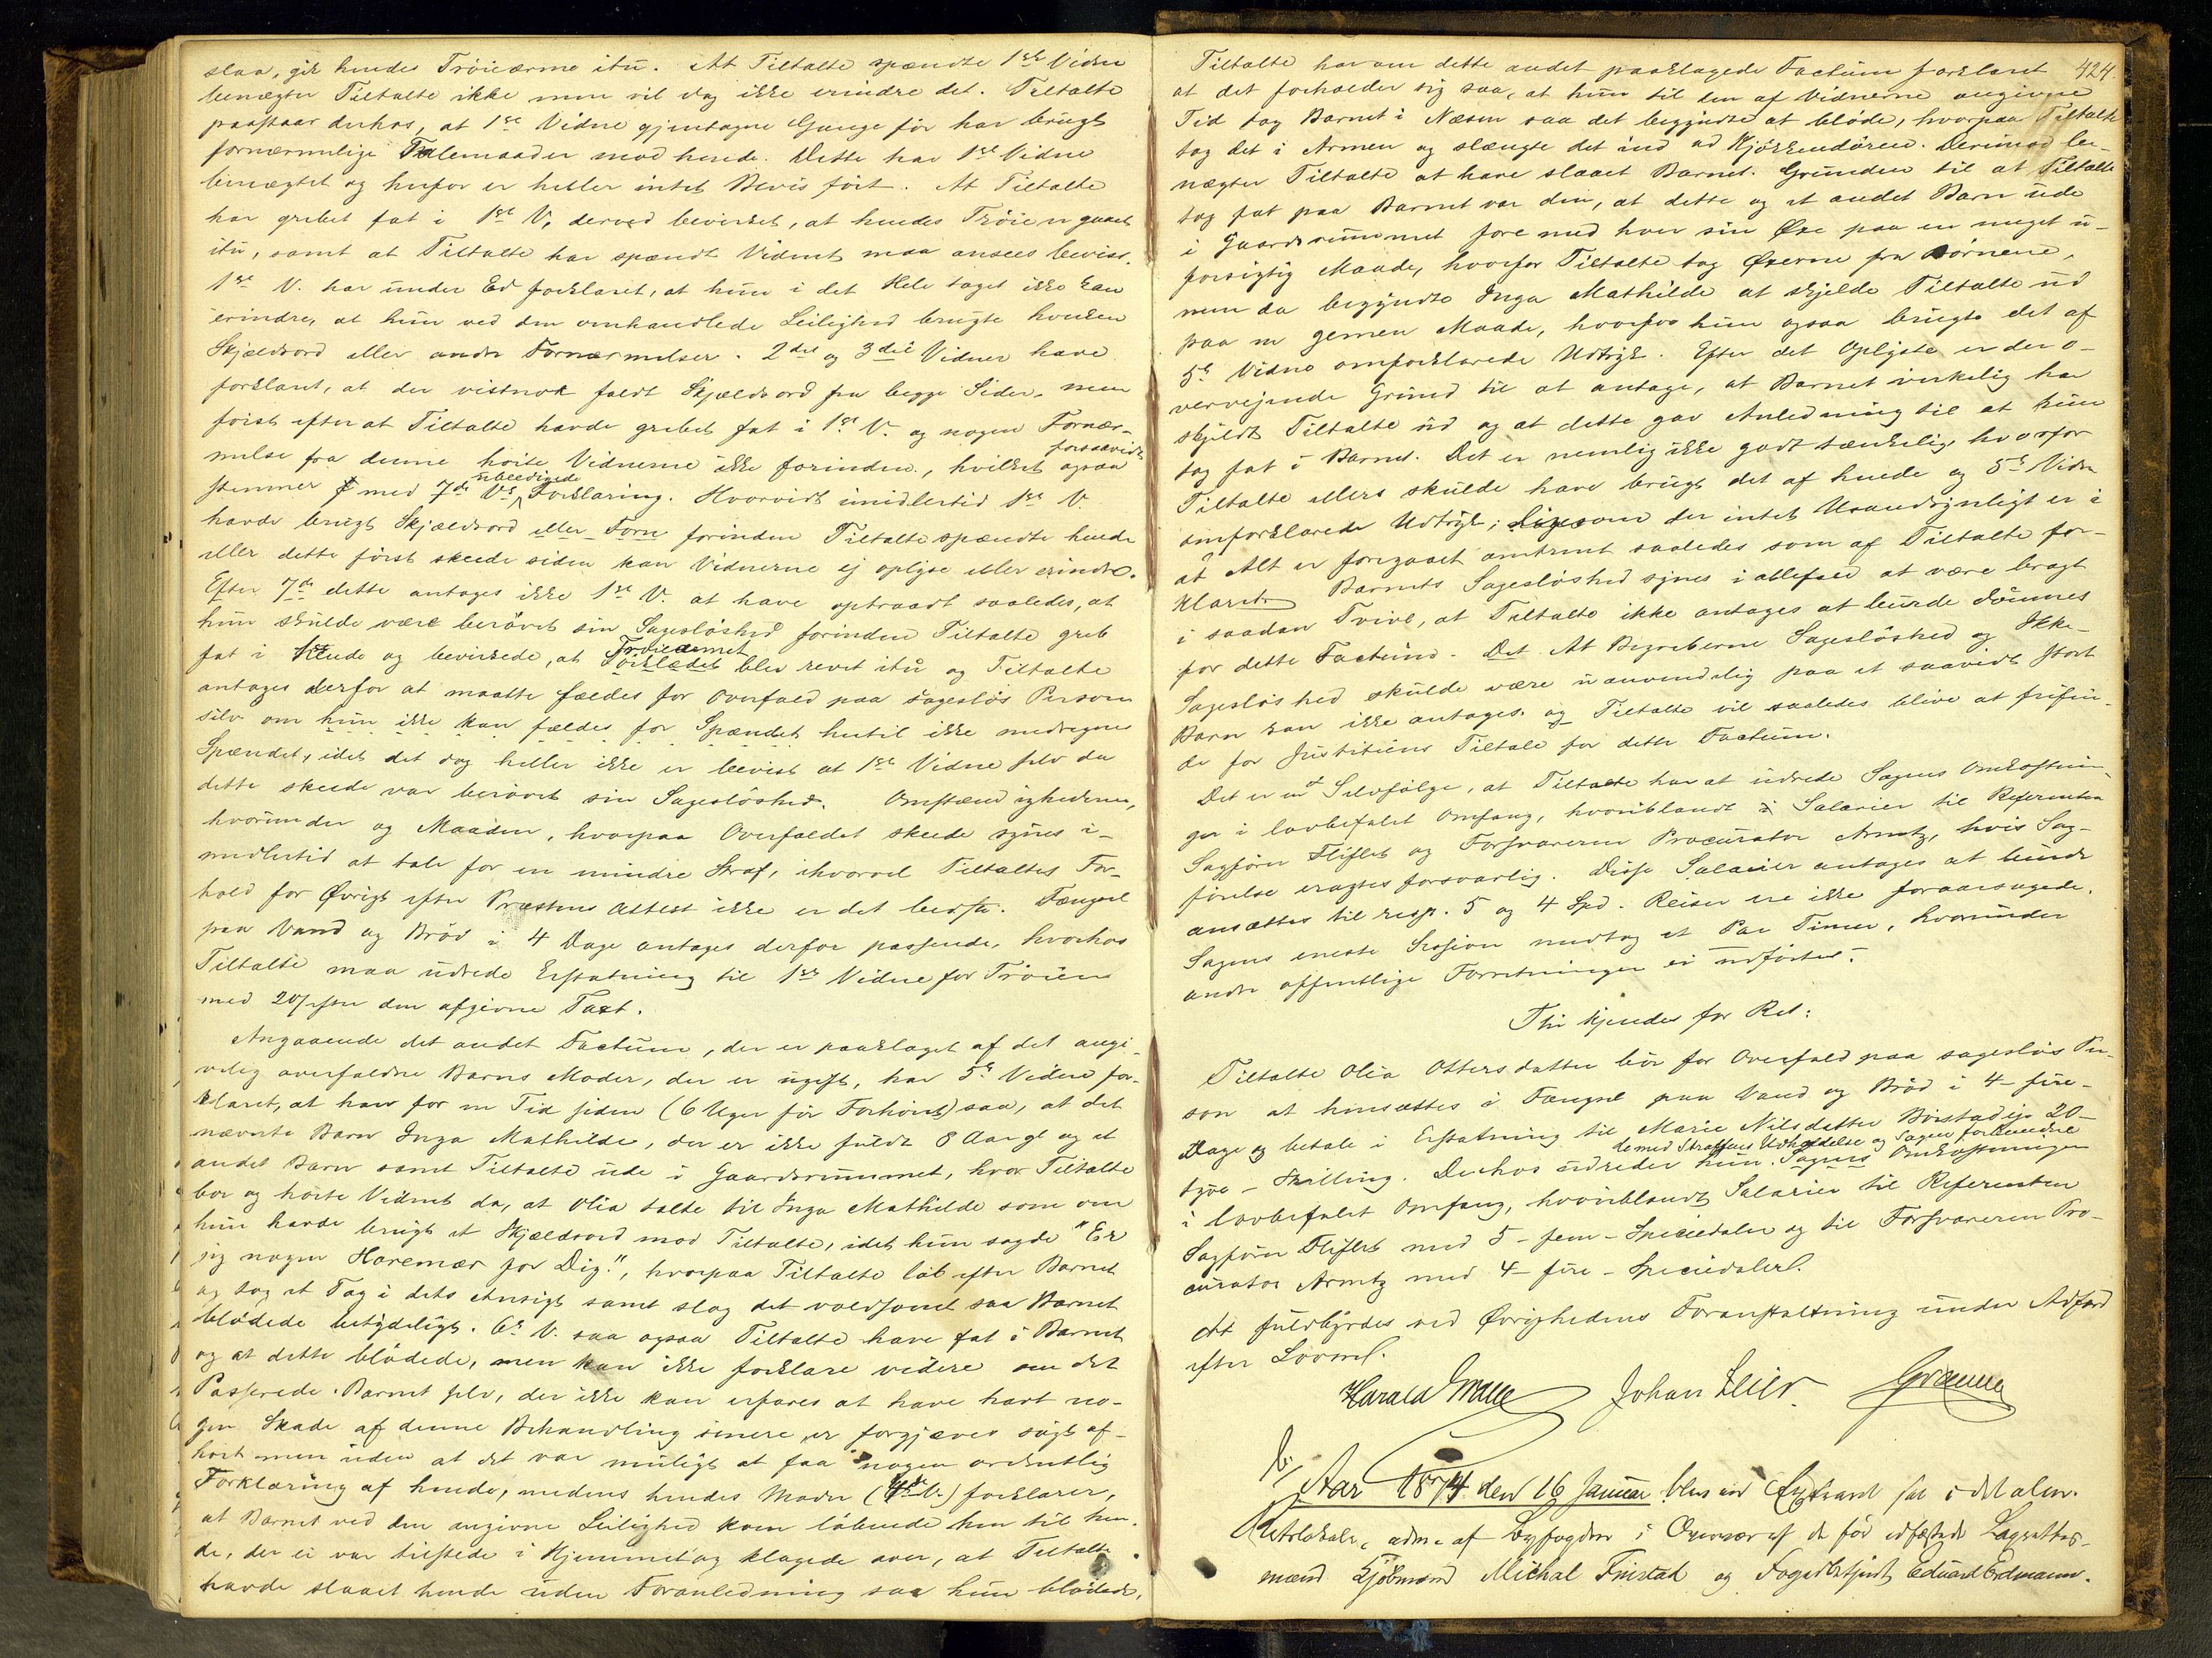 slaa, gik hendes Tröieærme itu. At Tiltalte spændte 1ste Vidne
benægter Tiltalte ikke men vil dog ikke erindre det. Tiltalte
paastaar derhos, at 1ste Vidne gjentagne Gange för har brugt
fornærmelige Talemaader mod hende. Dette har 1ste Vidne
benægtet og herfor er heller intet Bevis fört. At Tiltalte
har grebet fat i 1ste V, derved bevirket, at hendes Tröie er gaaet
itu, samt at Tiltalte har spændt Vidnet maa ansees bevist.
1ste V. har under Ed forklaret, at hun i det Hele taget ikke kan
erindre, at hun ved den omhandlede Leilighed brugte hverken
Skjældsord eller andre Fornærmelser. 2det og 3die Vidner have
forklaret, at der vistnok faldt Skjældsord fra begge Sider, men
först efter at Tiltalte havde grebet fat i 1ste V. og nogen Fornær-
melse fra denne hörte Vidnerne ikke forinden, hvilket ogsaa forsaavidt
stemmer med 7de Vs ubeedigede Forklaring. Hvorvidt imidlertid 1ste V.
havde brugt Skjældsord eller Forn forinden Tiltalte spændte hende
eller dette först skede siden kan Vidnerne ej oplyse eller erindre.
Efter 7de dette antages ikke 1ste V. at have optraadt saaledes, at
hun skulde være berövet sin Sageslöshed forinden Tiltalte greb
fat i hende og bevirkede, at Tröieærmet blev revet itu og Tiltalte
antages derfor at maatte fældes for Overfald paa sageslös Person
selv om hun ikke kan fældes for Spændet hertil ikke medregnes
Spændet, idet det dog heller ikke er bevist at 1ste Vidne selv da
dette skede var berövet sin Sageslöshed. Omstændighederne,
hvorunder og Maaden, hvorpaa Overfaldet skede synes i-
midlertid at tale for en mindre Straf, ihvorvel Tiltaltes For-
hold for Övrigt efter Præstens Attest ikke er det bedste. Fængsel
paa Vand og Bröd i 4 Dage antages derfor passende, hvorhos
Tiltalte maa udrede Erstatning til 1ste Vidne for Tröien
med 20 efter den afgivne Taxt.
Angaaende det andet Factum, der er paaklaget af det angi-
velig overfaldne Barns Moder, der er ugift, har 5te Vidne for-
klaret, at han for en Tid siden (6 Uger för Forhöret) saa, at det
nævnte Barn Inga Mathilde, der er ikke fuldt 8 Aar gl og et
andet Barn samt Tiltalte ude i Gaardsrummet, hvor Tiltalte
bor og hörte Vidnet da, at Olia talte til Inga Mathilde som om
hun havde brugt et Skjældsord mod Tiltalte, idet hun sagde "Er
jeg nogen Horemær for Dig.", hvorpaa Tiltalte löb efter Barnet
og tog et Tag i dets Ansigt samt slog det voldsomt saa Barnet
blödede betydeligt. 6te V. saa ogsaa Tiltalte have fat i Barnet
og at dette blödede, men kan ikke forklare videre om det
Passerede. Barnet selv, der ikke kan erfares at have havt no-
gen Skade af denne Behandling senere er forgjæves sögt af-
hört men uden at det var muligt at faa nogen ordentlig
Forklaring af hende, medens hendes Moder (4de V.) forklarer,
at Barnet ved den angivne Leilighed kom löbende hen til hen-
de, der ei var tilstede i Hjemmet og klagede over, at Tiltalte
havde slaaet hende uden Foranledning saa hun blödede.
424.
Tiltalte har om dette andet paaklagede Factum forklaret
at det forholder sig saa, at hun til den af Vidnerne angivne
Tid tog Barnet i Næsen saa det begyndte at blöde, hvorpaa Tiltalte
tog det i Armen og slængte det ind ad Kjökkendören. Derimod be-
nægter Tiltalte at have slaaet Barnet. Grunden til at Tiltalte
tog fat paa Barnet var den, at dette og et andet Barn ude
i Gaardsrummet fore med hver sin Öxe paa en meget u-
forsigtig Maade, hvorfor Tiltalte tog Öxerne fra Börnene,
men da begyndte Inga Mathilde at skjelde Tiltalte ud
paa en gemen Maade, hvorfor hun ogsaa brugte det af
5te Vidne omforklarede Udtryk. Efter det Oplyste er der o-
vervejende Grund til at antage, at Barnet virkelig har
skjeldt Tiltalte ud og at dette gav Anledning til at hun
tog fat i Barnet. Det er nemlig ikke godt tænkelig, hvorfor
Tiltalte ellers skulde have brugt det af hende og 5te Vidne
omforklarede Udtryk; ligesom der intet Usandsynligt er i
at Alt er foregaaet omtrent saaledes som af Tiltalte for-
klaret. Barnets Sageslöshed synes i altfald at være bragt
i saadan Tvivl, at Tiltalte ikke antages at burde dömmes
for dette Factum. Det At Begreberne Sageslöshed og Ikke-
Sageslöshed skulde være uanvendelig paa et saavidt stort
Barn kan ikke antages og Tiltalte vil saaledes blive at frifin-
de for Justitiens Tiltale for dette Factum.
Det er en Selvfölge, at Tiltalte har at udrede Sagens Omkostnin-
ger i lovbefalet Omfang, hvoriblandt Salarier til Referenten
Sagförer Fliflet og Forsvareren Procurator Arntz, hvis Sag-
förelse eragtes forsvarlig. Disse Salarier antages at burde
ansættes til resp. 5 og 4 Spd. Reiser ere ikke foraarsagede.
Sagens eneste Session medtog et Par Timer, hvorunder
andre offentlige Forretninger ei udförtes.
Thi kjendes for Ret:
Tiltalte Olia Ottersdatter bör for Overfald paa sageslös Per-
son at hensættes i Fængsel paa Vand og Bröd i 4 - fire -
Dage og betale i Erstatning til Marie Nilsdatter Börstadeje 20 -
tyve - Skilling. Derhos udreder hun de med Straffens Udholdelse og Sagen forbundne Omkostninger
i lovbefalet Omfang, hvoriblandt Salarier til Referenten
Sagförer Fliflet med 5 - fem - Speciedaler og til Forsvareren Pro-
curator Arntz med 4 - fire - Speciedaler.
At fuldbyrdes ved Övrighedens Foranstaltning under Adfærd
efter Loven.
Harald Johan
Aar 1874 den 16 Januar blev en Extraret sat i det alm.
Retslokale, adm. af Byfogden i Overvær af de för edfæstede Lagrettes-
mænd Kjöbmand Michal Finstad og Fogedbetjent Eduard Erdmann.